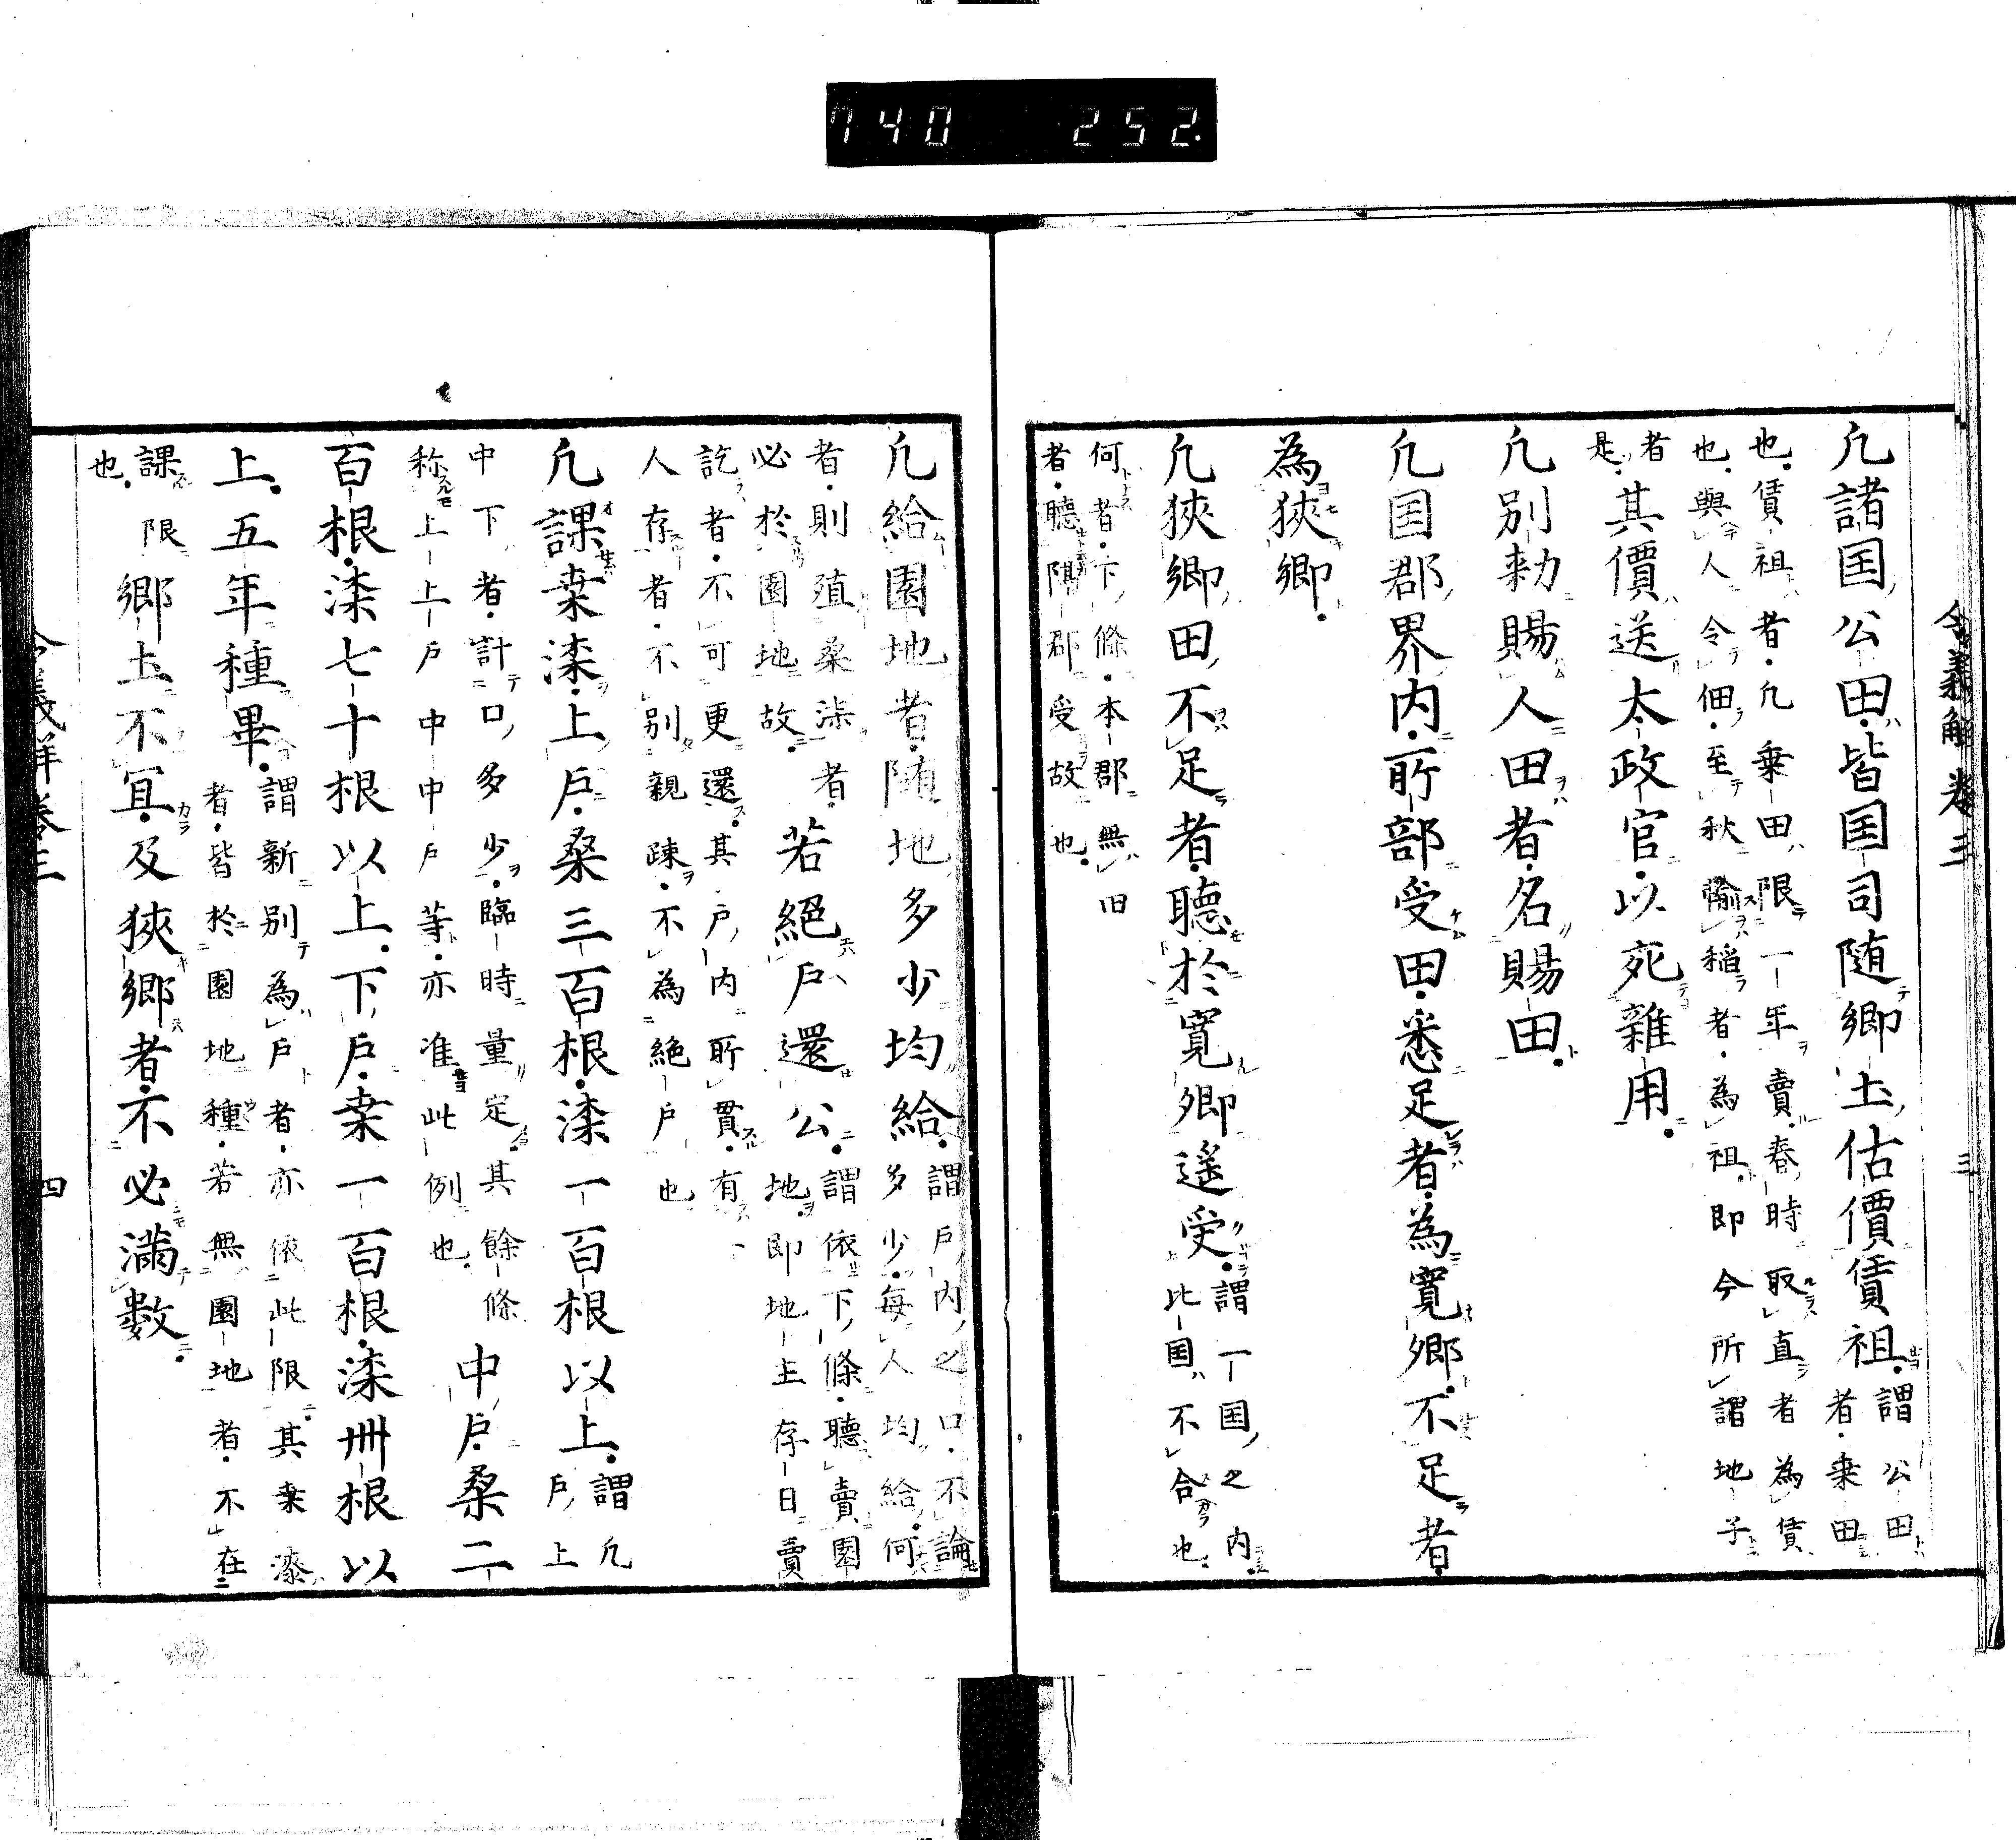 740 252
令義解 卷三 三
凢諸国公田皆国司随郷土估價賃租謂公田者乗田
也賃祖者凢乗田限一年賣春時取直者為賃
也與人令佃至秋輸稲者為祖即今所謂地子
者是其價送太政官以宛雜用
凢別勅賜人田者名賜田
凢国郡界内所部受田悉足者為寛郷不足者
為狹郷
凢狹郷田不足者聽於寛郷遥受謂一国之内比国不合也
何者下條本郡無田
者聽隔郡受故也
凢給園地者随地多少均給謂戸内之口不論多少毎人均給何
者則殖桑漆者必於園地故若絕戸還公謂依下條聽賣園地即地主存日賣
訖者不可更還其戸内所貫有
人存者不別親踈不為絶戸也
凢課桒漆上戸桑三百根漆一百根以上謂凢上戸
中下者計口多少臨時量定其餘條
称上上戸中中戸等亦准此例也中戸桑二
百根漆七十根以上下戸桒一百根漆卅根以
上五年種畢謂新別為戸者亦依此限其桒漆者皆於園地種若無園地者不在
課限也郷土不冝及狹郷者不必満数
令義解 卷三 四